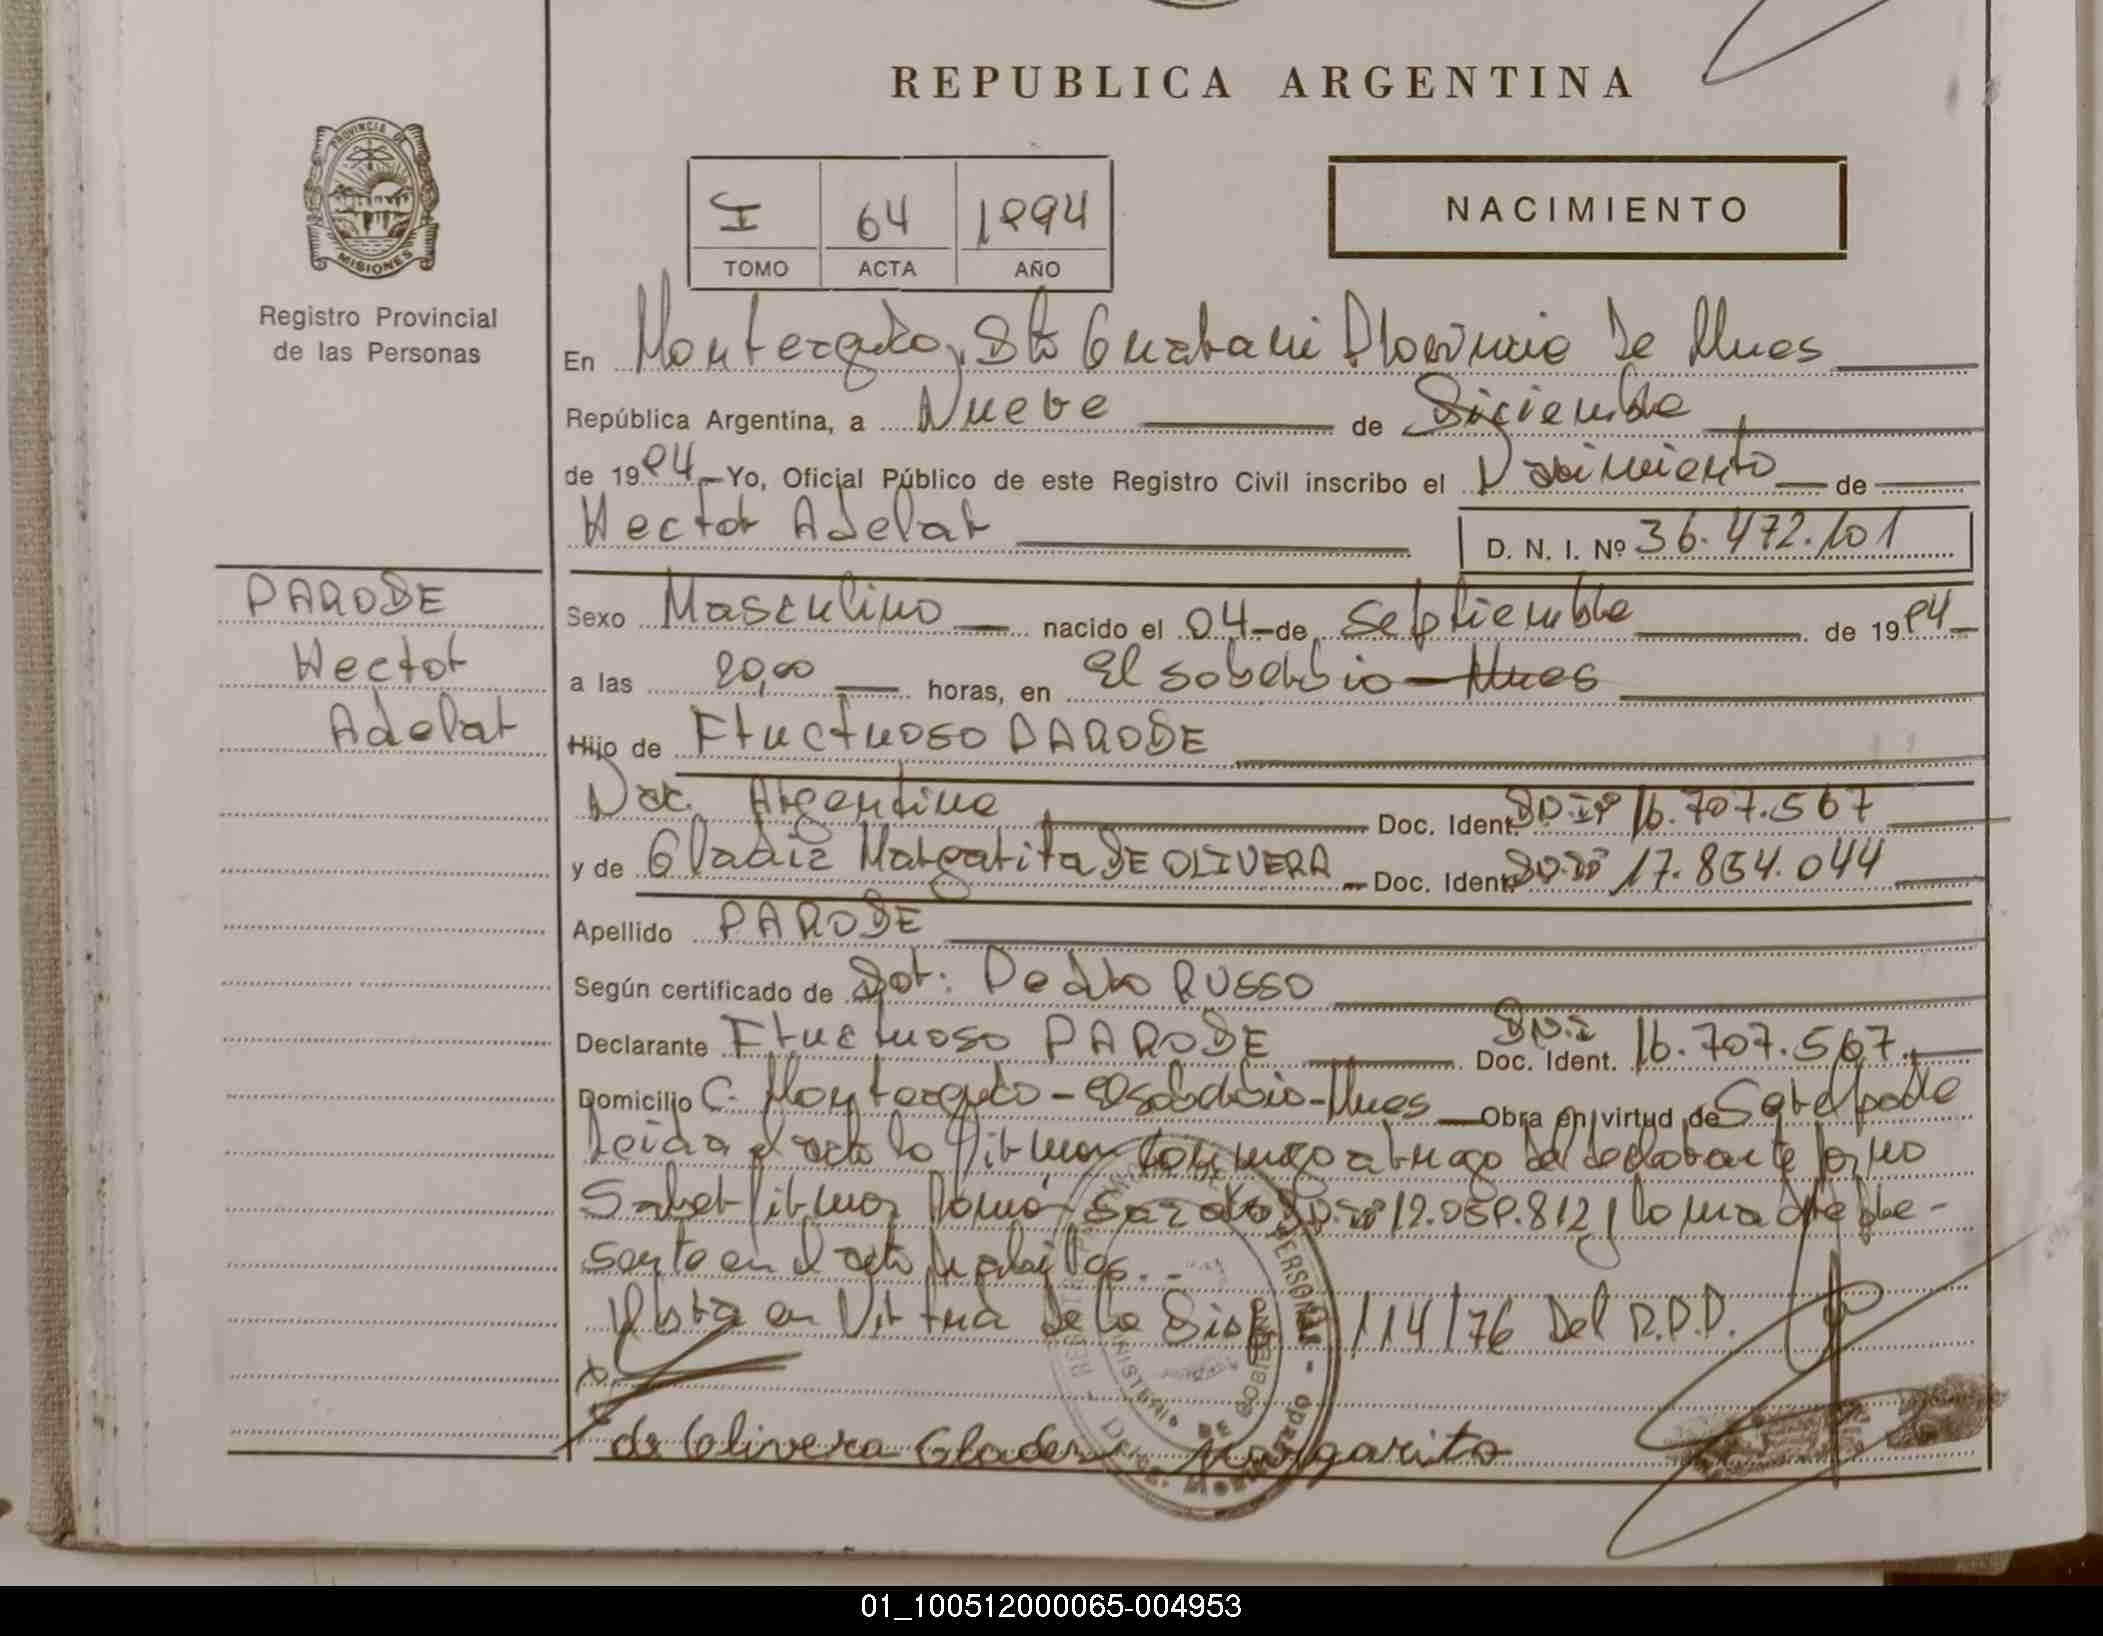 REPUBLICA ARGENTINA
PROVINCIA DE
MISIONES
Registro Provincial
de las Personas
I 64 1994
TOMO ACTA AÑO
NACIMIENTO
En Monteagudo, Dto Guarani Provincia de Mnes
República Argentina, a Nueve de Diciembre
de 1994 Yo, Oficial Público de este Registro Civil inscribo el Nacimiento de
Hector Adelar D. N. I. Nº 36.472.101
PARODE
Hector
Adelar
Sexo Masculino nacido el 04 de Septiembre de 1994
a las 20,00 horas, en El soberbio - Mnes
Hijo de Fructuoso PARODE
Nac. Argentina Doc. Ident. D.N.I Nº 16.707.567
y de Gladiz Margarita DE OLIVERA Doc. Ident. 17.854.044
Apellido PARODE
Según certificado de Dor: Pedro RUSSO
Declarante Fructuoso PARODE Doc. Ident. D.N.I 16.707.567
Domicilio C. Monteagudo - El Soberbio - Mnes Obra en virtud de Ser el padre
Leida el acta la firman conmigo a ruego del declarante por no
Saber firmar Ramón 12.059.812 y la madre pre-
sente en el acto
Obra en Virtud de la Disp 114/76 Del R.P.P.
de Olivera Glades Margarita
01_100512000065-004953